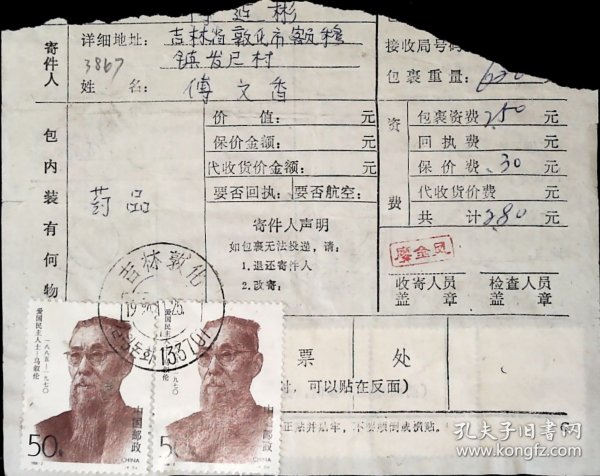 寄件人
详细地址: 吉林省敦化市额穆
镇发民村
3867
姓 名: 傅文香
接收局号码
包裹重量:
包内装有何物
药品
价 值: 元
保价金额: 元
代收货价金额: 元
要否回执: 要否航空:
寄件人声明
如包裹无法投递,请:
1.退还寄件人
2.改寄:
资费
包裹资费 2.50 元
回执费 元
保价费 .30 元
代收货价费 元
共 计 2.80 元
廖金凤
收寄人员
盖 章
检查人员
盖 章
吉林敦化
133701
票 处
时,可以贴在反面)
爱国民主人士·马叙伦
一八八五—一九七〇
中国邮政
CHINA
50分
爱国民主人士·马叙伦
一八八五—一九七〇
中国邮政
CHINA
50
孔夫子旧书网